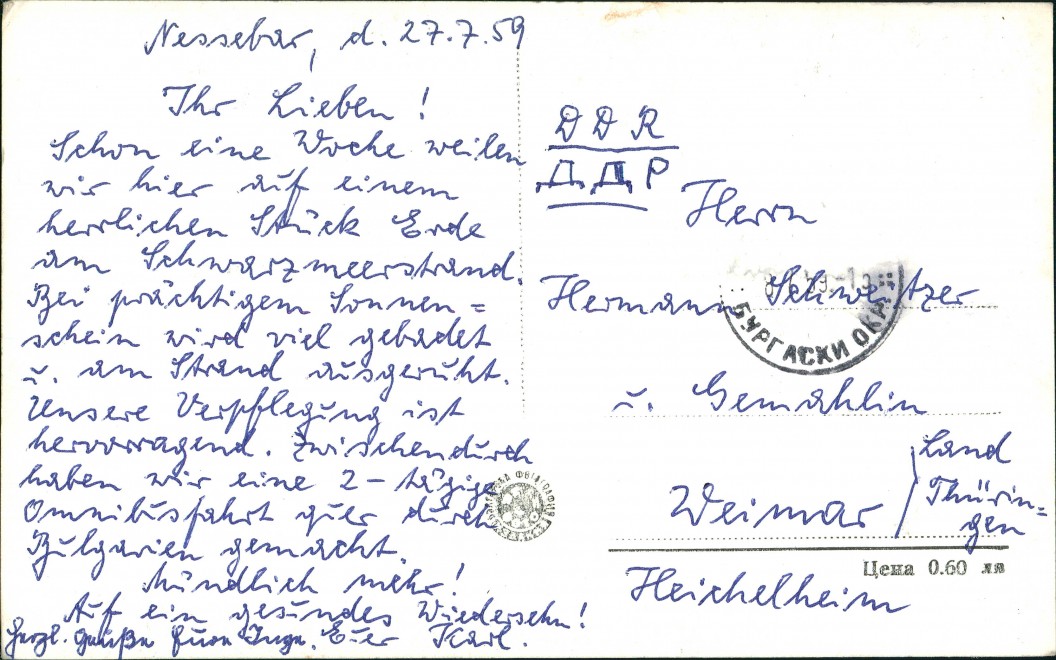 Nessebar, d. 27.7.59
Ihr Lieben!
Schon eine Woche weilen
wir hier auf einem
herrlichen Stück Erde
am Schwarzmeerstrand.
Bei prächtigem Sonnen=
schein wird viel gebadet
u. am Strand ausgeruht.
Unsere Verpflegung ist
hervorragend. Zwischendurch
haben wir eine 2-tägige
Omnibusfahrt quer durch
Bulgarien gemacht.
Mündlich mehr!
Auf ein gesundes Wiedersehn!
Herzl. Grüße Eure Inge. Euer Karl.
DDR
ДДР
Herrn
Hermann Schweitzer
u. Gemahlin
Weimar / Land
Thürin=
gen
Heichelheim
БУРГАСКИ ОКР.
Цена 0.60 лв